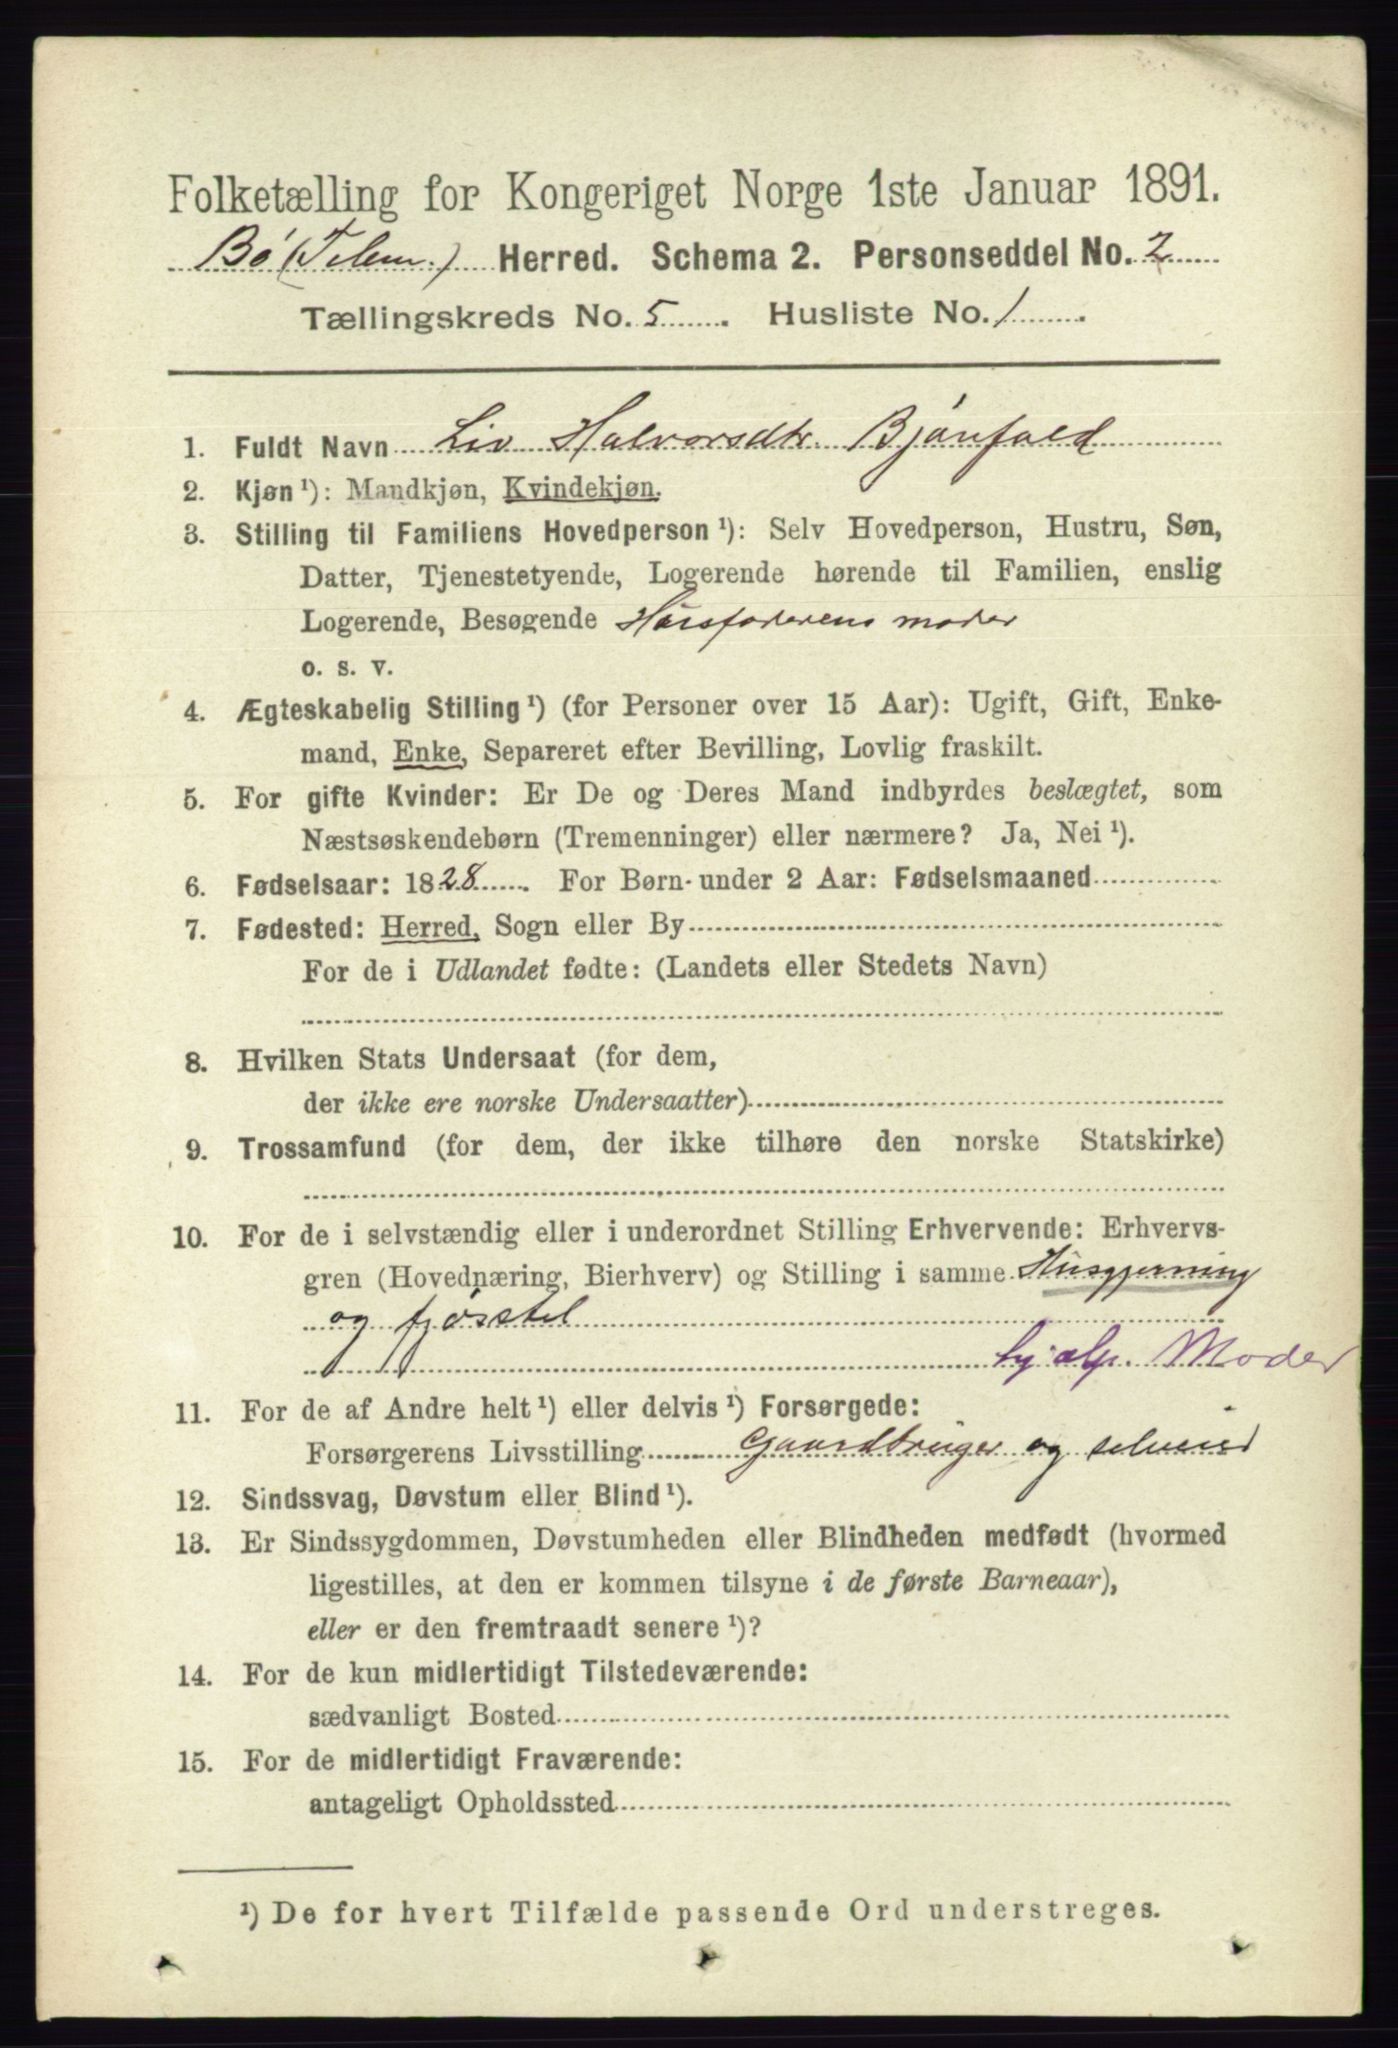 Folketælling for Kongeriget Norge 1ste Januar 1891.
Bö (Telem.) Herred. Schema 2. Personseddel No. 2
Tællingskreds No. 5 . Husliste No. 1 .
1. Fuldt Navn Liv Halvorsdtr. Bjönfald
2. Kjøn ¹): Mandkjøn, Kvindekjøn.
3. Stilling til Familiens Hovedperson ¹): Selv Hovedperson, Hustru, Søn,
Datter, Tjenestetyende, Logerende hørende til Familien, enslig
Logerende, Besøgende Husfaderens moder
o. s. v.
4. Ægteskabelig Stilling ¹) (for Personer over 15 Aar): Ugift, Gift, Enke-
mand, Enke, Separeret efter Bevilling, Lovlig fraskilt.
5. For gifte Kvinder: Er De og Deres Mand indbyrdes beslægtet, som
Næstsøskendebørn (Tremenninger) eller nærmere? Ja, Nei ¹).
6. Fødselsaar: 1828 . For Børn under 2 Aar: Fødselsmaaned
7. Fødested: Herred, Sogn eller By
For de i Udlandet fødte: (Landets eller Stedets Navn)
8. Hvilken Stats Undersaat (for dem,
der ikke ere norske Undersaatter)
9. Trossamfund (for dem, der ikke tilhøre den norske Statskirke)
10. For de i selvstændig eller i underordnet Stilling Erhvervende: Erhvervs-
gren (Hovednæring, Bierhverv) og Stilling i samme Husgjerning
og fjösstel
hjælp. Moder
11. For de af Andre helt ¹) eller delvis ¹) Forsørgede:
Forsørgerens Livsstilling Gaardbruger og selveier
12. Sindssvag, Døvstum eller Blind ¹).
13. Er Sindssygdommen, Døvstumheden eller Blindheden medfødt (hvormed
ligestilles, at den er kommen tilsyne i de første Barneaar),
eller er den fremtraadt senere ¹)?
14. For de kun midlertidigt Tilstedeværende:
sædvanligt Bosted
15. For de midlertidigt Fraværende:
antageligt Opholdssted
¹) De for hvert Tilfælde passende Ord understreges.